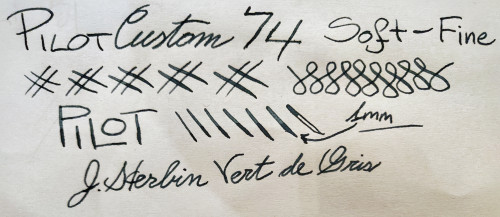 PILOT Custom 74 Soft-Fine
PILOT 1mm
J. Herbin Vert de Gris